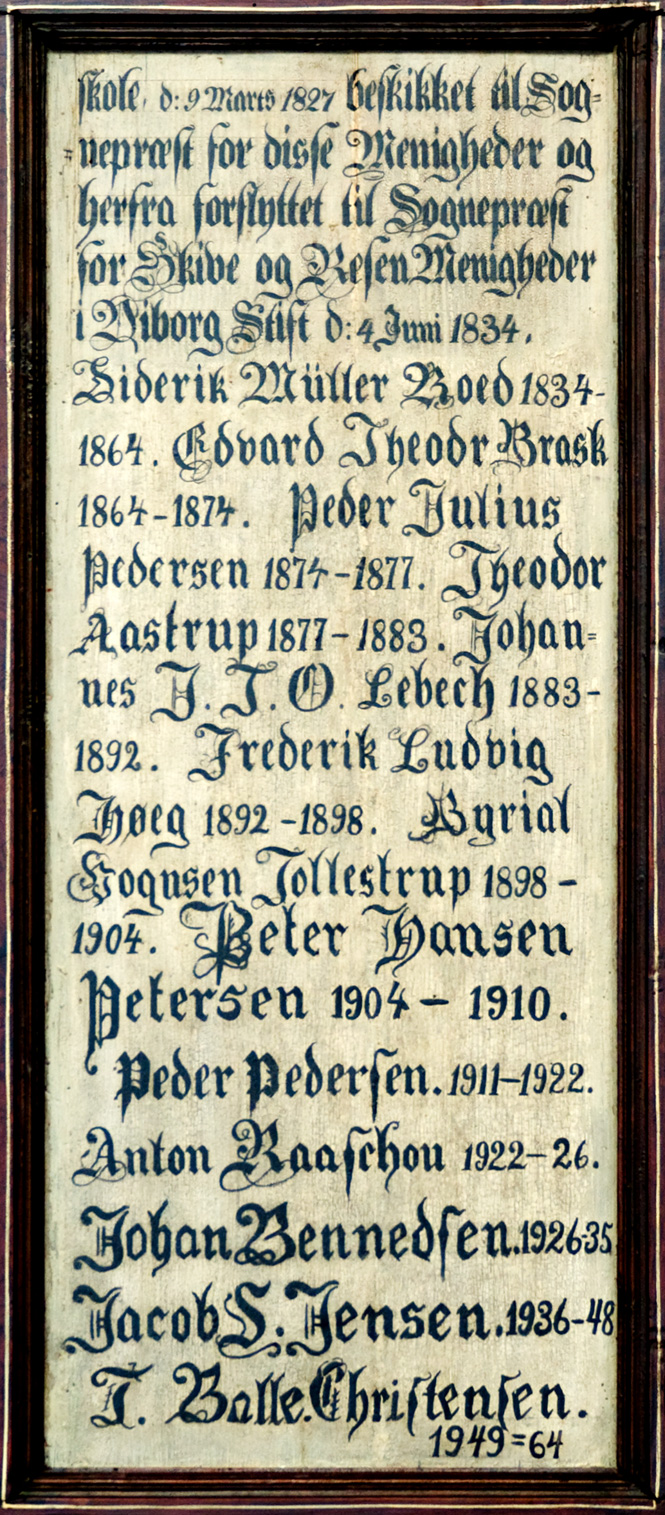 skole, d: 9 Marts 1827 beskikket til Sog=
=nepræst for disse Menigheder og
herfra forflyttet til Sognepræst
for Skive og Resen Menigheder
i Viborg Stift d: 4 Juni 1834.
Diderik Müller Roed 1834-
1864. Edvard Theodr Brask
1864-1874. Peder Julius
Pedersen 1874-1877. Theodor
Aastrup 1877-1883. Johan=
nes J. T. O. Lebech 1883-
1892. Frederik Ludvig
Høeg 1892-1898. Byrial
Vognsen Tollestrup 1898-
1904. Peter Hansen
Petersen 1904-1910.
Peder Pedersen. 1911-1922.
Anton Raaschou 1922-26.
Johan Bennedsen. 1926-35
Jacob S. Jensen. 1936-48
T. Balle.Christensen.
1949=64